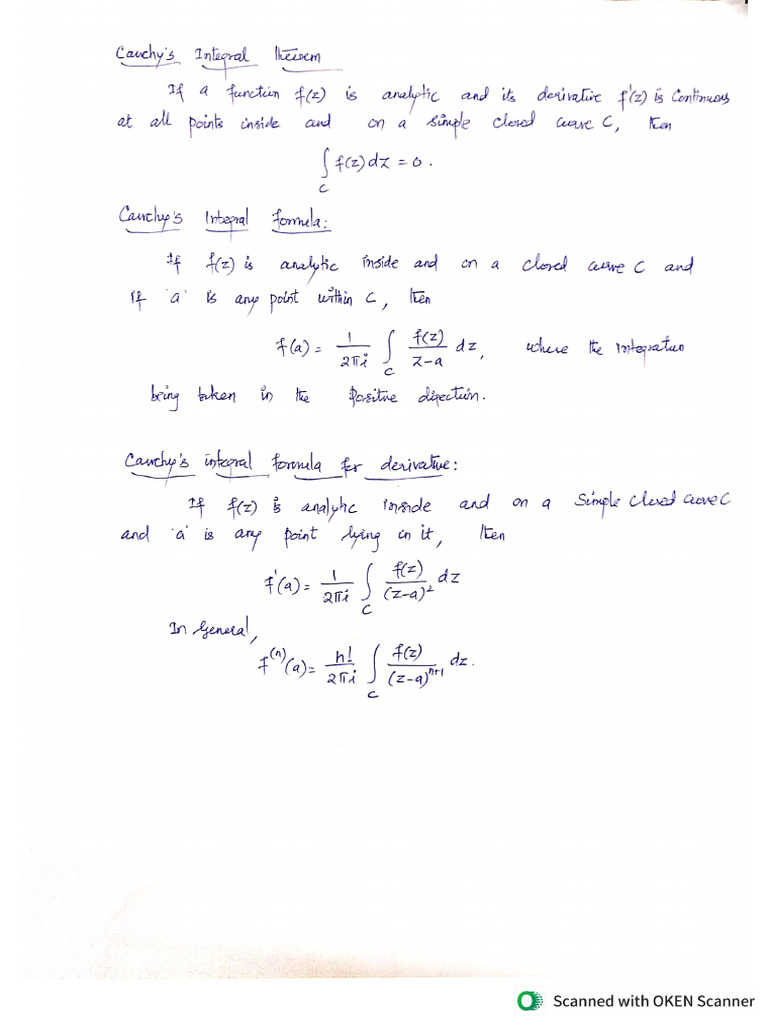 Cauchy's Integral theorem
If a function f(z) is analytic and its derivative f'(z) is Continuous
at all points inside and on a simple closed curve C, then
∫_C f(z) dz = 0.
Cauchy's Integral formula:
If f(z) is analytic inside and on a closed curve C and
if 'a' is any point within C, then
f(a) = 1/2πi ∫_C f(z)/z-a dz, where the integration
being taken in the positive direction.
Cauchy's integral formula for derivative:
If f(z) is analytic inside and on a Simple closed curve C
and 'a' is any point lying in it, then
f'(a) = 1/2πi ∫_C f(z)/(z-a)² dz
In General,
f^(n)(a) = n!/2πi ∫_C f(z)/(z-a)^(n+1) dz.
Scanned with OKEN Scanner